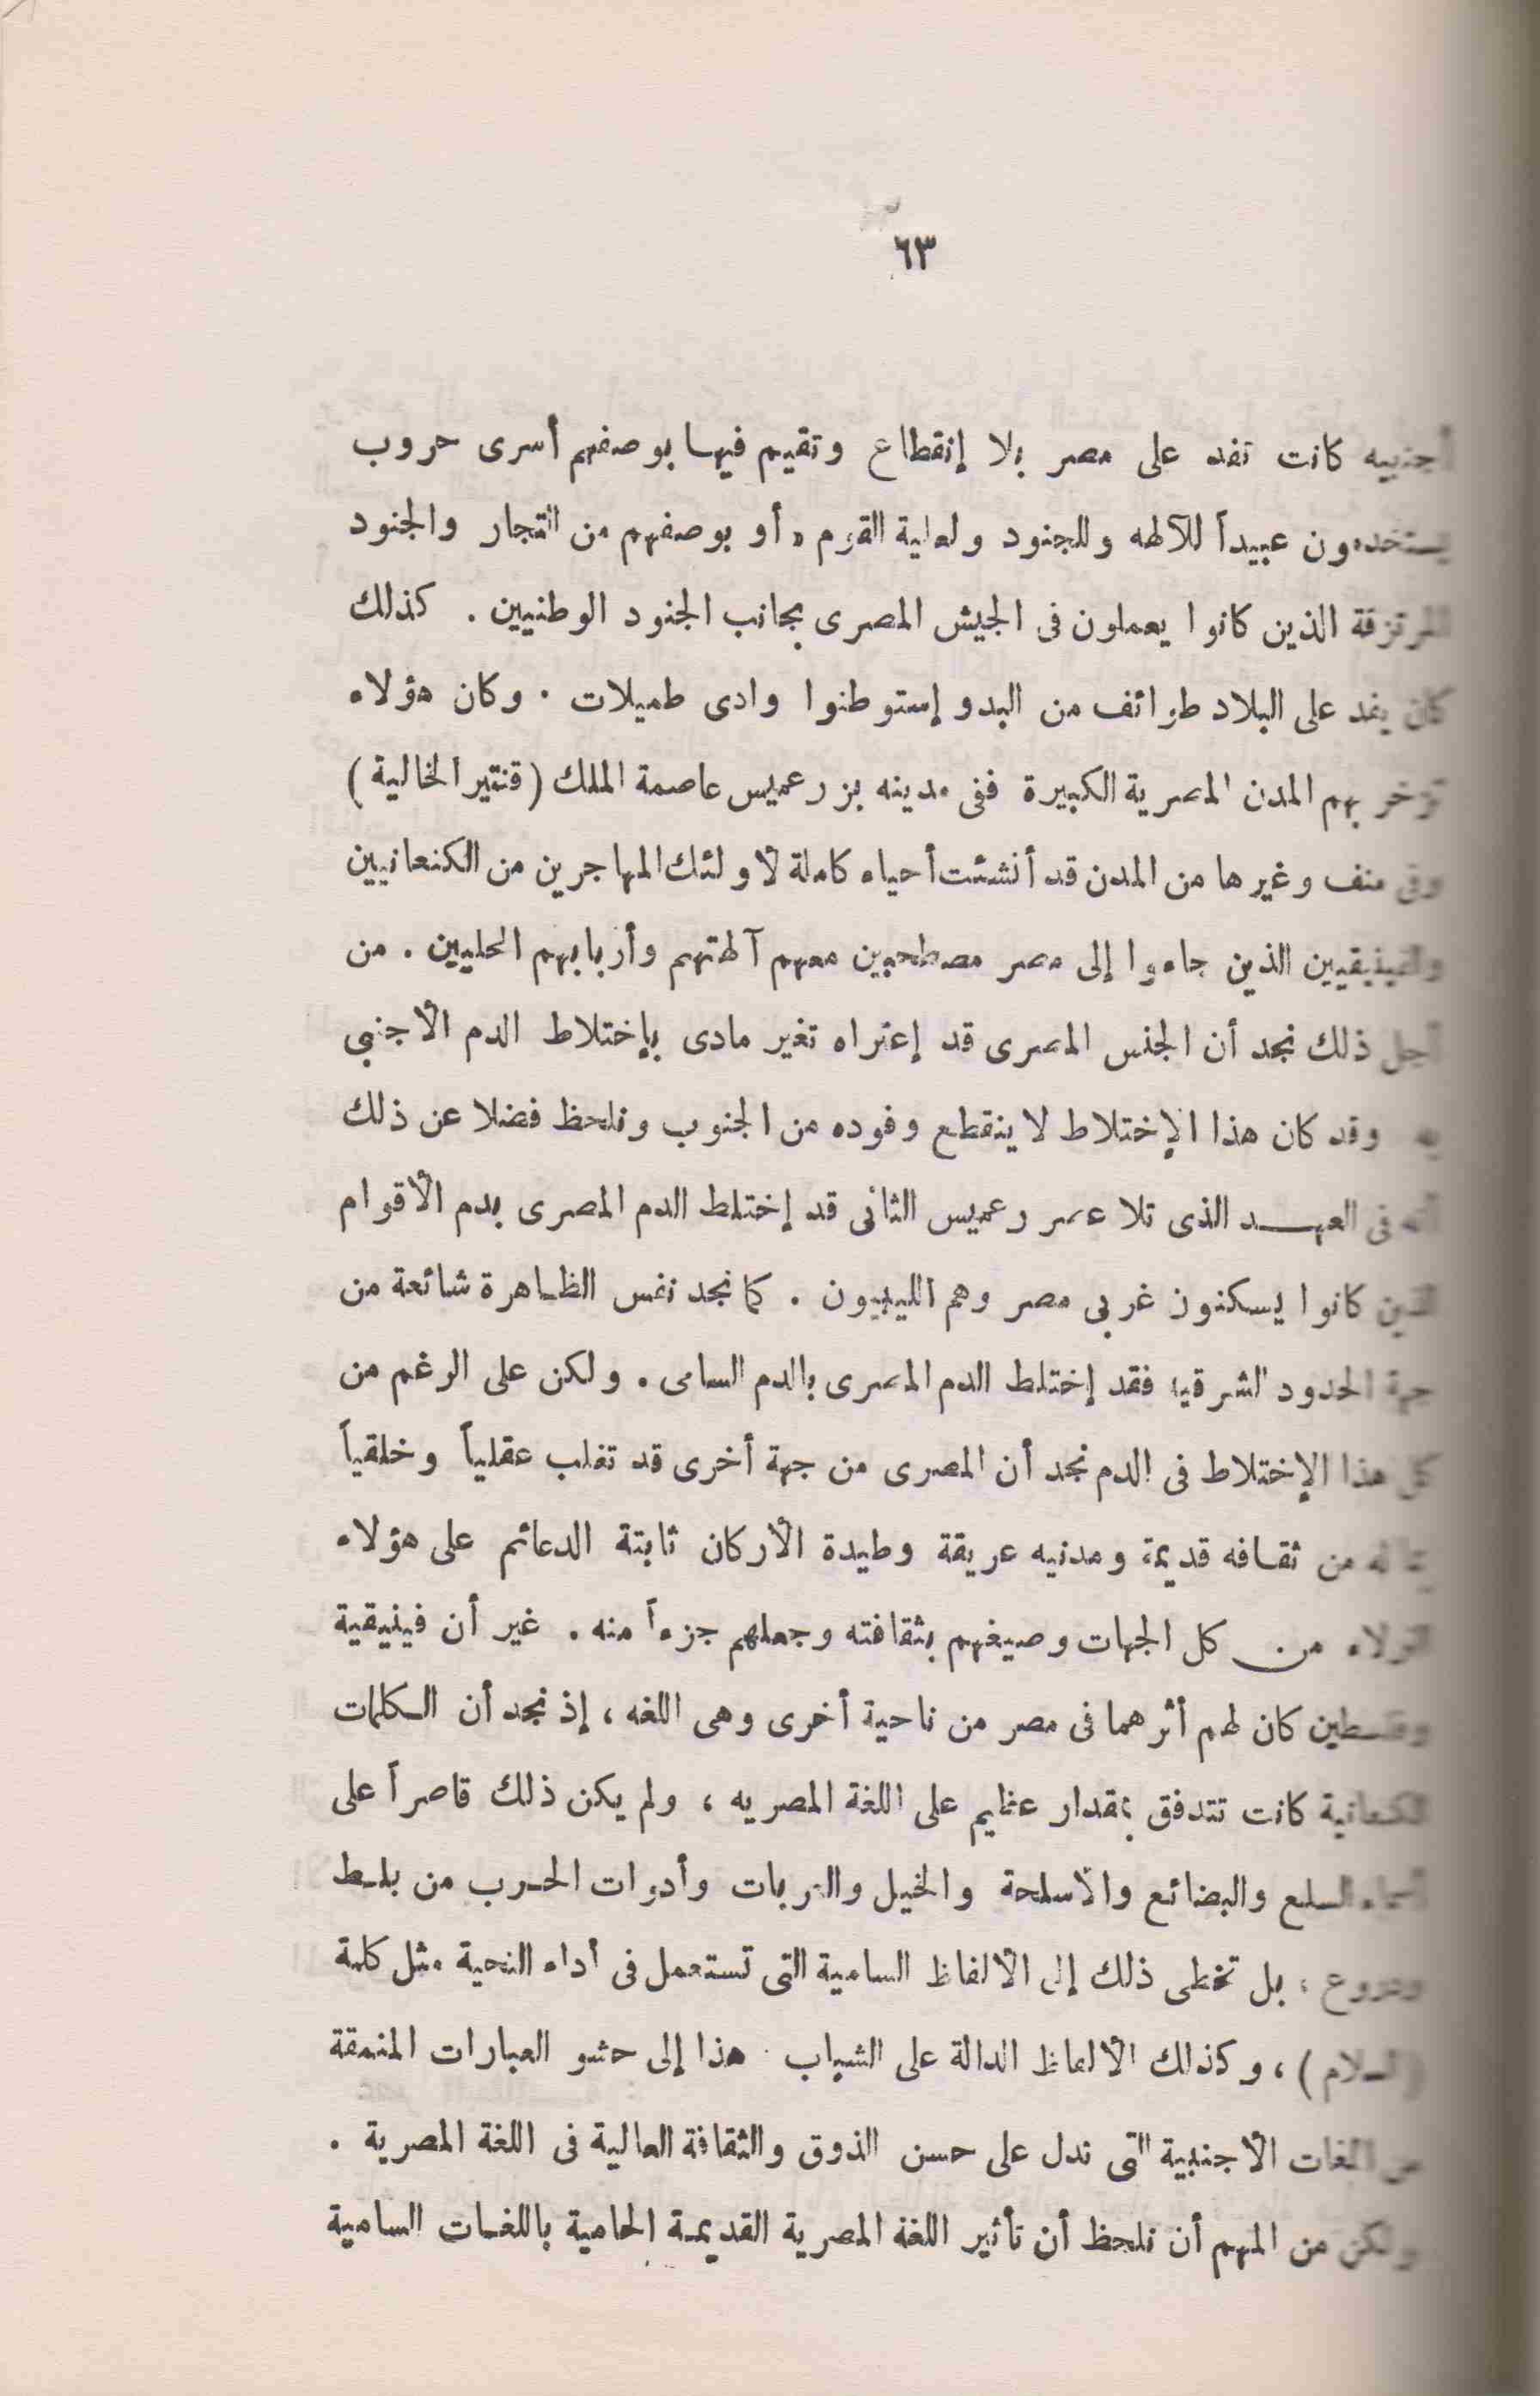 ٦٣
أجنبيه كانت تفد على مصر بلا إنقطاع وتقيم فيها بوصفهم أسرى حروب
يستخدمون عبيداً للآلهه وللجنود ولعلية القوم، أو بوصفهم من التجار والجنود
المرتزقة الذين كانوا يعملون فى الجيش المصرى بجانب الجنود الوطنيين . كذلك
كان يفد على البلاد طوائف من البدو إستوطنوا وادى طميلات . وكان هؤلاء
تزخر بهم المدن المصرية الكبيرة ففى مدينه بر رعميس عاصمة الملك (قنتير الخالية)
وفى منف وغيرها من المدن قد أنشئت أحياء كاملة لأولئك المهاجرين من الكنعانيين
والفينيقيين الذين جاءوا إلى مصر مصطحبين معهم آلهتهم وأربابهم المحليين . من
أجل ذلك نجد أن الجنس المصرى قد إعتراه تغير مادى بإختلاط الدم الأجنبى
به وقد كان هذا الإختلاط لا ينقطع وفوده من الجنوب ونلحظ فضلا عن ذلك
أنه فى العهد الذى تلا عصر رعميس الثانى قد إختلط الدم المصرى بدم الأقوام
الذين كانوا يسكنون غربى مصر وهم الليبيون . كما نجد نفس الظاهرة شائعة من
جهة الحدود الشرقية فقد إختلط الدم المصرى بالدم السامى . ولكن على الرغم من
كل هذا الإختلاط فى الدم نجد أن المصرى من جهة أخرى قد تغلب عقلياً وخلقياً
بماله من ثقافه قديمة ومدنيه عريقة وطيدة الأركان ثابتة الدعائم على هؤلاء
النزلاء من كل الجهات وصيغهم بثقافته وجعلهم جزءاً منه . غير أن فينيقية
وفلسطين كان لهم أثرهما فى مصر من ناحية أخرى وهى اللغه ، إذ نجد أن الكلمات
الكنعانية كانت تتدفق بمقدار عظيم على اللغة المصريه ، ولم يكن ذلك قاصراً على
أسماء السلع والبضائع والأسلحة والخيل والعربات وأدوات الحرب من بلط
ودروع ، بل تخطى ذلك إلى الألفاظ السامية التى تستعمل فى أداء التحية مثل كلمة
(السلام) ، وكذلك الألفاظ الدالة على الشباب . هذا إلى حشو العبارات المنمقة
من اللغات الأجنبية التى تدل على حسن الذوق والثقافة العالية فى اللغة المصرية .
ولكن من المهم أن نلحظ أن تأثير اللغة المصرية القديمة الحامية باللغات السامية